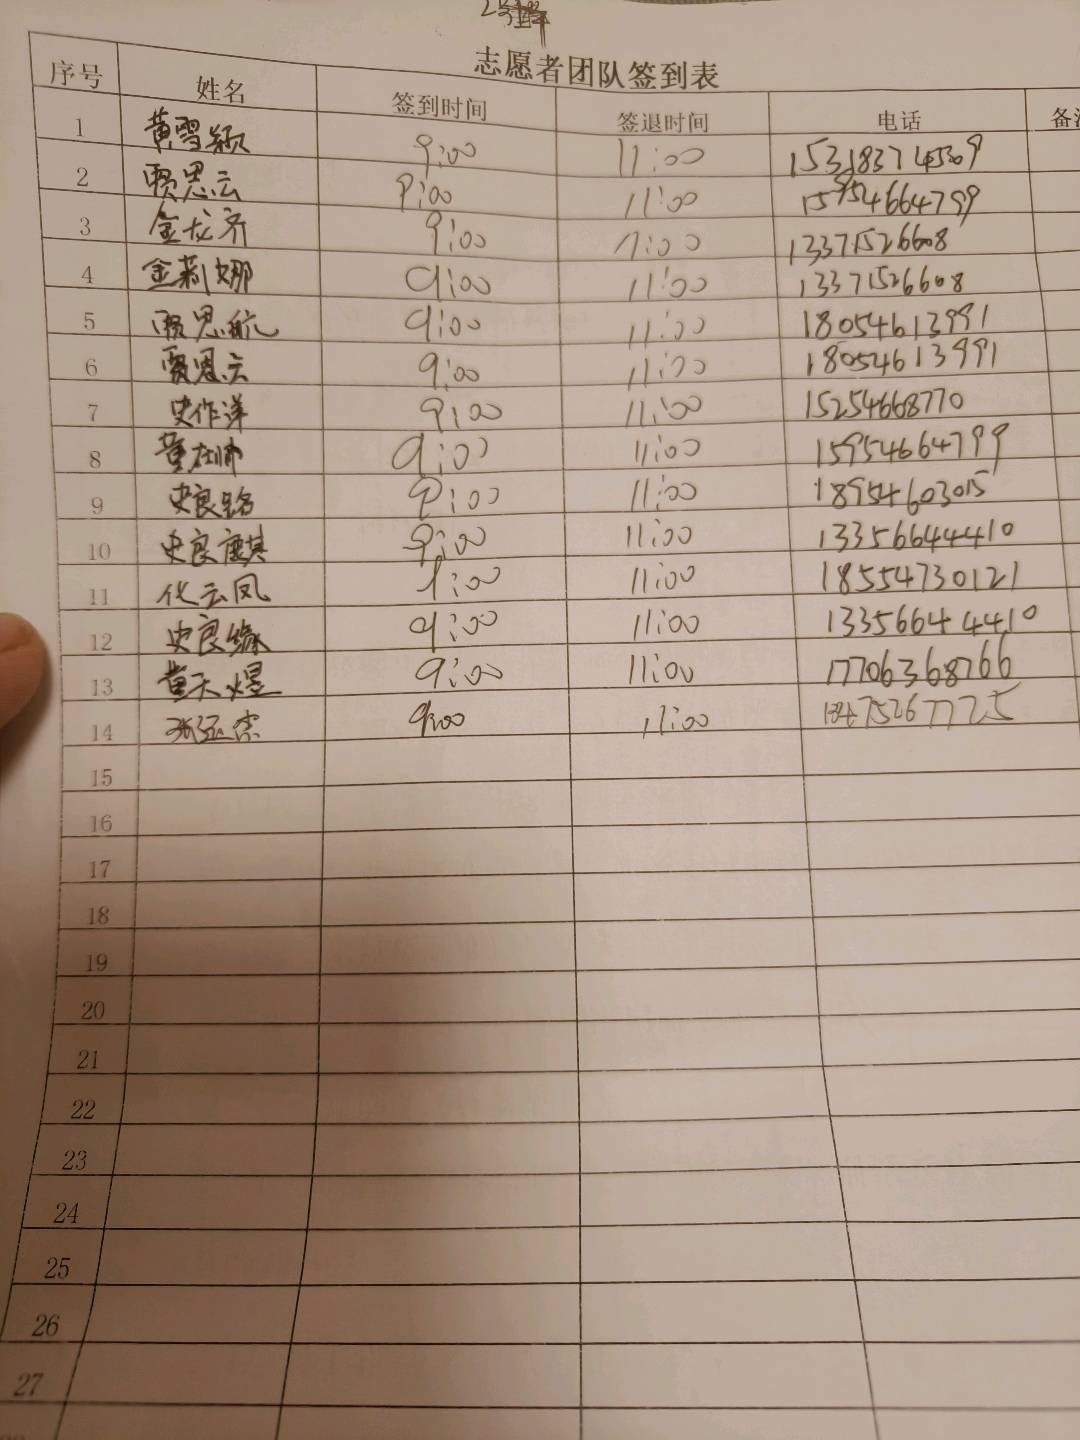 志愿者团队签到表
序号 姓名 签到时间 签退时间 电话 备注
1 黄雪颖 9:00 11:00
2 贾思云 9:00 11:00 15954664799
3 金龙齐 9:00 11:00 13371526608
4 金莉娜 9:00 11:00 13371526608
5 贾思航 9:00 11:00 18054613991
6 贾恩云 9:00 11:00 18054613991
7 史作洋 9:00 11:00 15254668770
8 黄在帅 9:00 11:00 15954664799
9 史良路 9:00 11:00 18954603015
10 史良麒 9:00 11:00 13356644410
11 化云凤 9:00 11:00 18554730121
12 史良缘 9:00 11:00 13356644410
13 黄天煜 9:00 11:00 17706368766
14 9:00 11:00
15
16
17
18
19
20
21
22
23
24
25
26
27